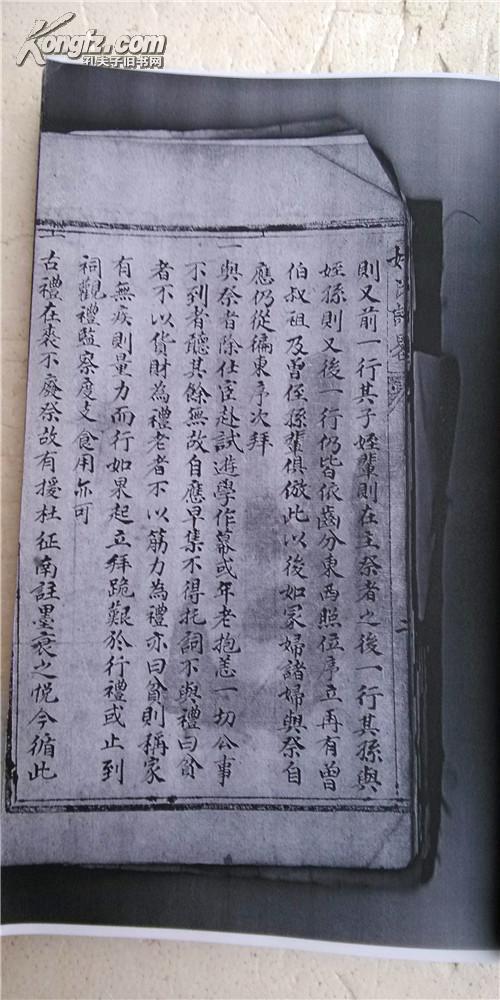 Kongfz.com
孔夫子旧书网
則又前一行其子姪輩則在主祭者之後一行其孫與
姪孫則又後一行仍皆依齒分東西照位序立再有曾
伯叔祖及曾侄孫輩俱倣此以後如冢婦諸婦與祭自
應仍從徧東序次拜
一與祭者除仕宦赴試遊學作幕或年老抱恙一切公事
不到者聽其餘無故自應早集不得托詞不與禮曰貧
者不以貨財為禮老者不以筋力為禮亦曰貧則稱家
有無疾則量力而行如果起立拜跪艱於行禮或止到
祠觀禮監察度支食用亦可
一古禮在喪不廢祭故有援杜征南註墨衰之悅今循此